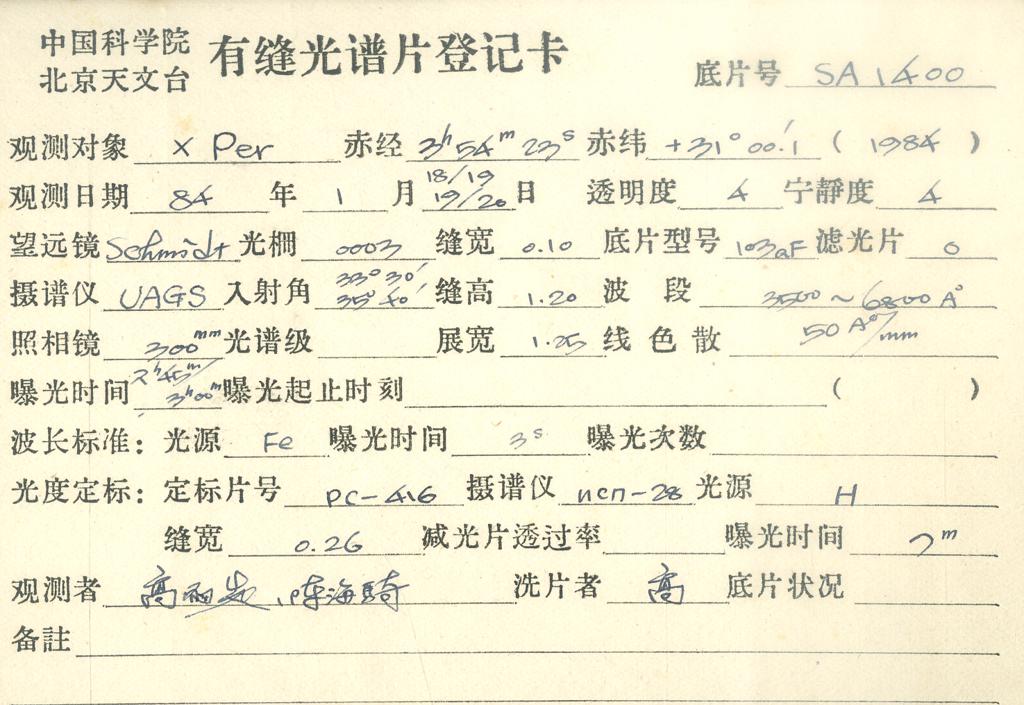 中国科学院
北京天文台
有缝光谱片登记卡
底片号 SA 1400
观测对象 X Per 赤经 3h 54m 23s 赤纬 +31° 00.'1 ( 1984 )
观测日期 84 年 1 月 18/19 19/20 日 透明度 4 宁静度 4
望远镜 Schmidt 光栅 0003 缝宽 0.10 底片型号 103aF 滤光片 0
摄谱仪 UAGS 入射角 33° 30' 35° 40' 缝高 1.20 波段 3500 ~ 6800 A°
照相镜 300mm 光谱级 展宽 1.25 线色散 50 A°/mm
曝光时间 2h 45m/ 3h 00m 曝光起止时刻 ( )
波长标准: 光源 Fe 曝光时间 3s 曝光次数
光度定标: 定标片号 PC-416 摄谱仪 исп-28 光源 H
缝宽 0.26 减光片透过率 曝光时间 7m
观测者 高 、陈海骑 洗片者 高 底片状况
备註